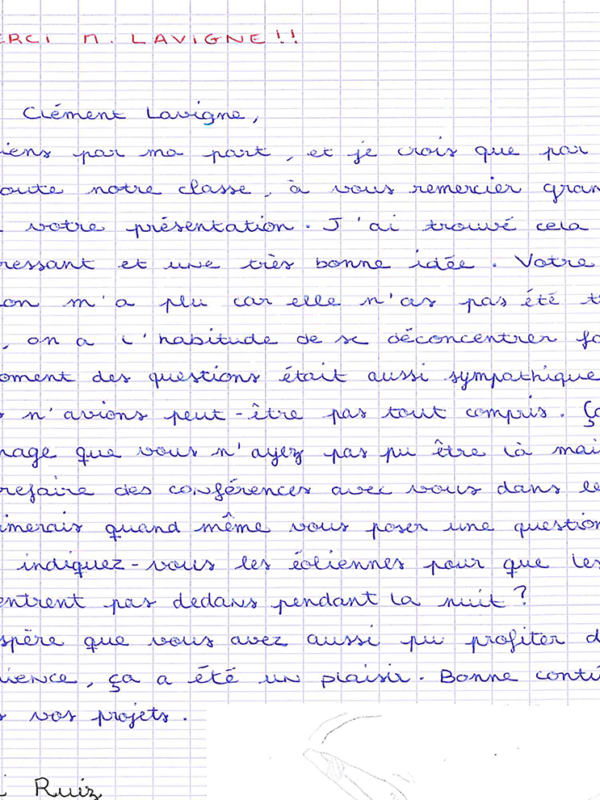 ERCI M. LAVIGNE!!
Clément Lavigne,
iens par ma part, et je crois que par
oute notre classe, à vous remercier gran
votre présentation. J'ai trouvé cela
ressant et une très bonne idée. Votre
on m'a plu car elle n'as pas été t
, on a l'habitude de se déconcentrer fa
oment des questions était aussi sympathique
s n'avions peut-être pas tout compris. Ça
mage que vous n'ayez pas pu être là mai
refaire des conférences avec vous dans le
imerais quand même vous poser une question
indiquez-vous les éoliennes pour que les
entrent pas dedans pendant la nuit ?
spère que vous avez aussi pu profiter d
ience, ça a été un plaisir. Bonne conti
s vos projets.
i Ruiz